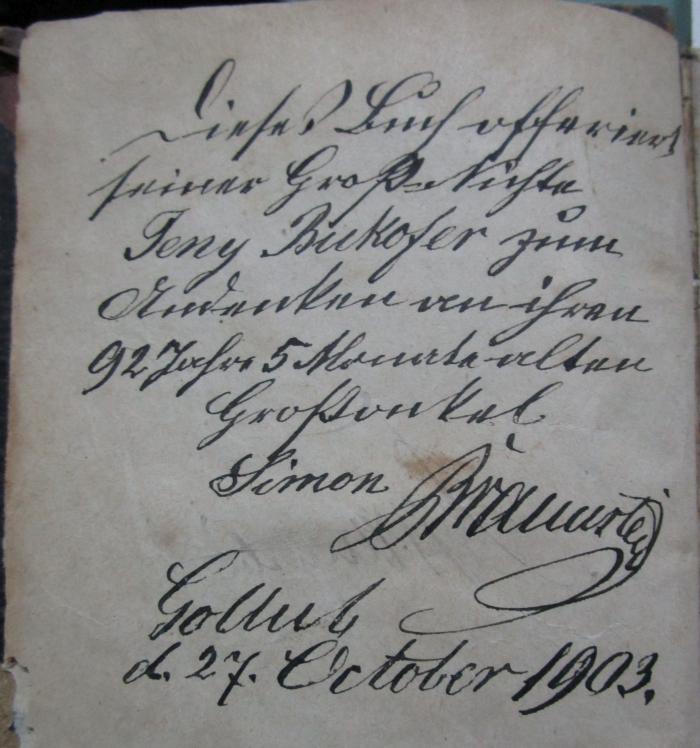 Dieses Buch offeriert
seiner Groß-Nichte
Jeny Bukofzer zum
Andenken an ihren
92 Jahre 5 Monate alten
Großonkel
Simon Braunstein
Gollub
d. 27. October 1903.